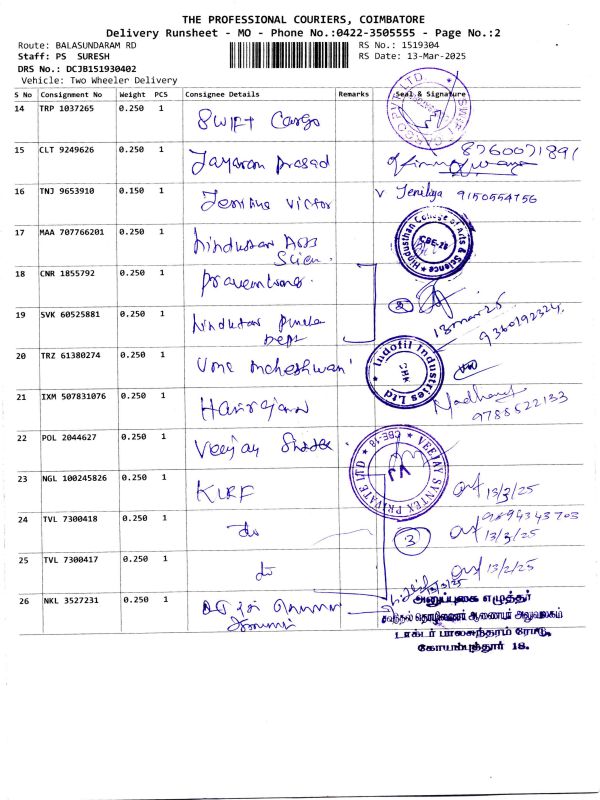 THE PROFESSIONAL COURIERS, COIMBATORE
Delivery Runsheet - MO - Phone No.:0422-3505555 - Page No.:2
Route: BALASUNDARAM RD
RS No.: 1519304
Staff: PS SURESH
RS Date: 13-Mar-2025
DRS No.: DCJB151930402
Vehicle: Two Wheeler Delivery
S No Consignment No Weight PCS Consignee Details Remarks Seal & Signature
14 TRP 1037265 0.250 1 Swift Cargo
15 CLT 9249626 0.250 1 Jayaram Prasad 8760071891
16 TNJ 9653910 0.150 1 Victor 9150554756
17 MAA 707766201 0.250 1 Hindustan Arts Scien.
Hindusthan College of Arts & Science CBE-28
18 CNR 1855792 0.250 1
2
13 mar 25
19 SVK 60525881 0.250 1 Hindustan Dept 9360192324
20 TRZ 61380274 0.250 1
Indofil Industries Ltd CHK
21 IXM 507831076 0.250 1 9788522133
22 POL 2044627 0.250 1 Veejay
VEEJAY SYNTEX PRIVATE LTD CBE-18
23 NGL 100245826 0.250 1 KURF 13/3/25
24 TVL 7300418 0.250 1 do 3 13/3/25
25 TVL 7300417 0.250 1 do
26 NKL 3527231 0.250 1
அனுப்புகை எழுத்தர்
தொழிலாளர் ஆணையர் அலுவலகம்
டாக்டர் பாலசுந்தரம் ரோடு,
கோயம்புத்தூர் 18.